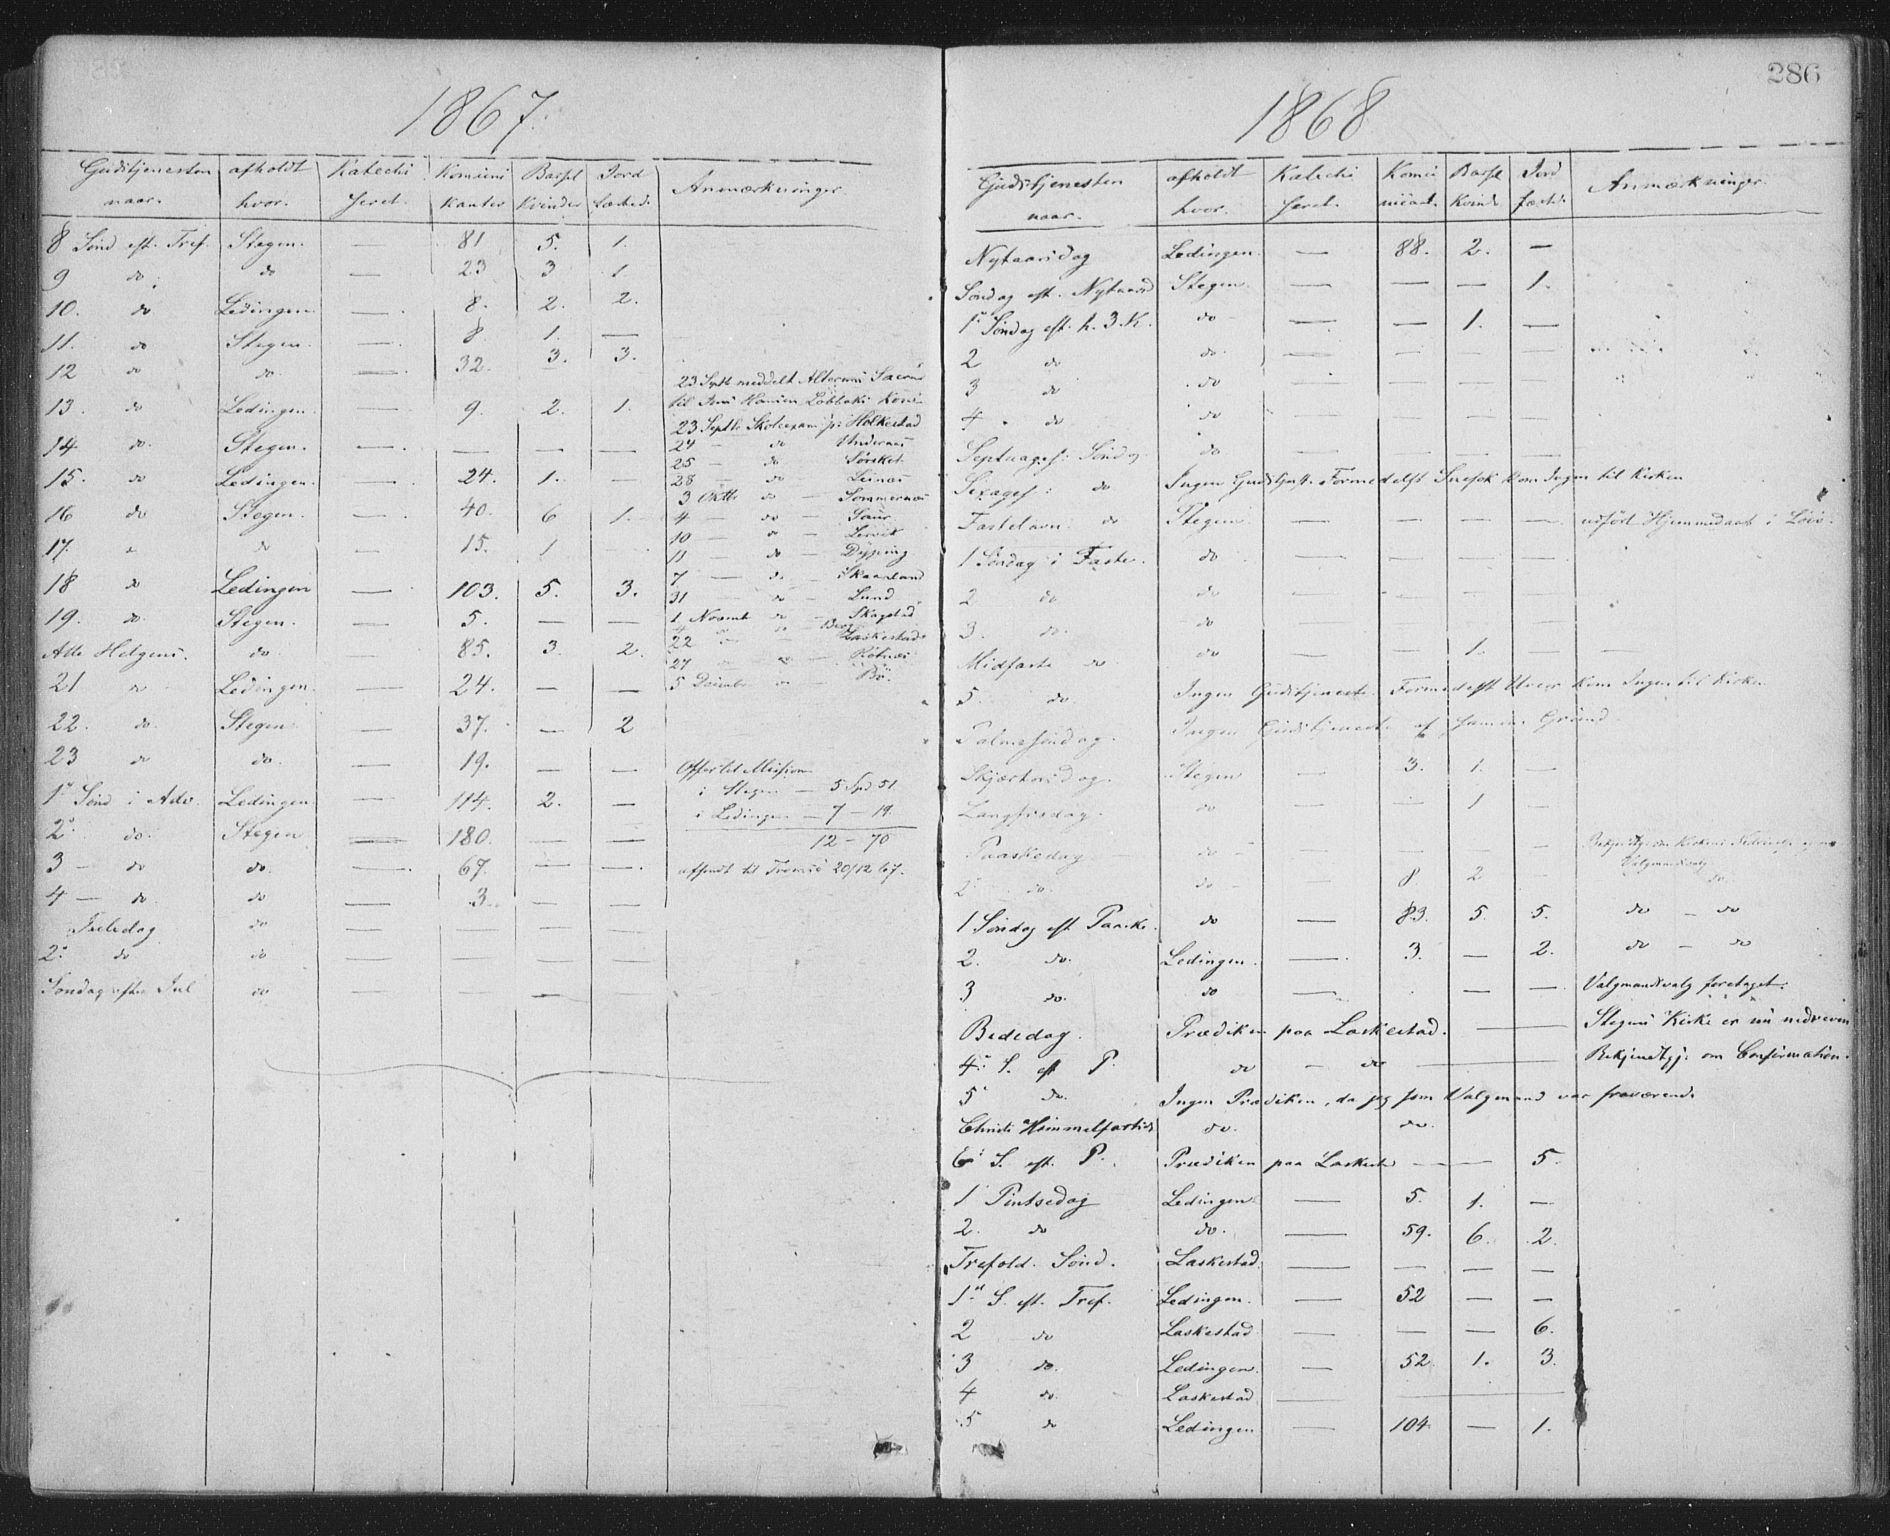 286
1867.
Gudstjenesten naar. afholdt hvor. Katechi seret. Kommuni kanter Barsel Kvinder Jord fæstede Anmærkninger.
8 Sønd eft. Tref. Stegen. — 81 5. 1.
9 do do — 23 3 1.
10. do Ledingen. — 8. 2. 2.
11. do Stegen. — 8 1. —
12 do do. — 32. 3. 3.
13. do Ledingen. — 9. 2. 1.
14 do. Stegen. — — — —
15. do Ledingen. — 24. 1. —
16 do Stegen. — 40. 6 1.
17. do — 15. 1 —
18 do Ledingen — 103. 5. 3.
19. do. Stegen. — 5. — —
Alle Helgens. do — 85. 3. 2.
21 Ledingen. — 24. — —
22. do. Stegen. — 37. — 2
23 do do. — 19. — —
1ste Sønd i Adv. Ledingen — 114. 2. —
2. do. Stegen — 180. — —
3 — do do. — 67. — —
4 — do. do — 3. — —
Juledag do — — — —
2. do do — — — —
Søndag efter Jul do — — — —
23 Septb meddelt
23 Septb Skoleexam: Holkestad
24 — do
25 — do
28 — do Leinæs
3 Oktb do — Sommernæs
4 — do —
10 — do —
11 — do —
7 — do — Skaanland
31 do — Lund
1 Novemb do — Skagstad
22 Laskestad
27
5 Decemb do — Bö.
Offer til Mission
i Stegen — 5 Spd 51.
i Ledingen — 7 — 19.
12 — 70
afsendt til Tromsø 20/12 67.
1868
Gudstjenesten naar. afholdt hvor. Katechi seret. Kommu nicant. Barsel Kvinde Jord fæstede Anmærkninger.
Nytaarsdag Ledingen. — 88. 2. —
Søndag eft. Nytaard Stegen. — — — 1.
1ste Søndag eft. h. 3. K. do — — 1. —
2 do do. — — — —
3 do do — — — —
4 do do — — — —
Septuages: Søndag do — — — —
Sexages: do Ingen Gudstjst. Formedelst Snefok kom Ingen til Kirken
Fastelavn do Stegen — — — — udført Hjemmedaab i
1 Søndag i Faste. do — — — —
2 do. do — — — —
3. do. do — — — —
Midfaste do do — — 1. —
5. do. Ingen Gudstjeneste. Formedelst Uveir kom Ingen til Kirken
Palmesøndag. Ingen Gudstjeneste af samme Grund.
Skjærtorsdag. Stegen — 3. 1. —
Langfredag. do — — 1 —
Paaskedag do — — — — —
2. do. do — — 8 2 — do.
1 Søndag eft Paaske. do — 83. 5. 5. do — do
2. do. Ledingen. — 3. — 2. do — do
3 do. do — — — Valgmandsvalg foretaget.
Bededag. Prædiken paa Laskestad. — Stegens Kirke er nu nedreven
4. S. eft P. do — do — Bekjendtgj. om Confirmation.
5 do. Ingen Prædiken, da jeg som Valgmand var fraværende
Christi Himmelfartsd do. do.
6. S. eft. P. Prædiken paa Laskestd — 5.
1 Pintsedag Ledingen. — 5. 1. —
2. do do. — 59. 6. 2.
Trefold. Sønd. Laskestad. — — — —
1ste S. eft. Tref. Ledingen. — 52 — —
2 do Laskestad — — — 6.
3 do. Ledingen. — 52. 1. 3.
4 do. Laskestad —
5 do Ledingen — 104 — 1.